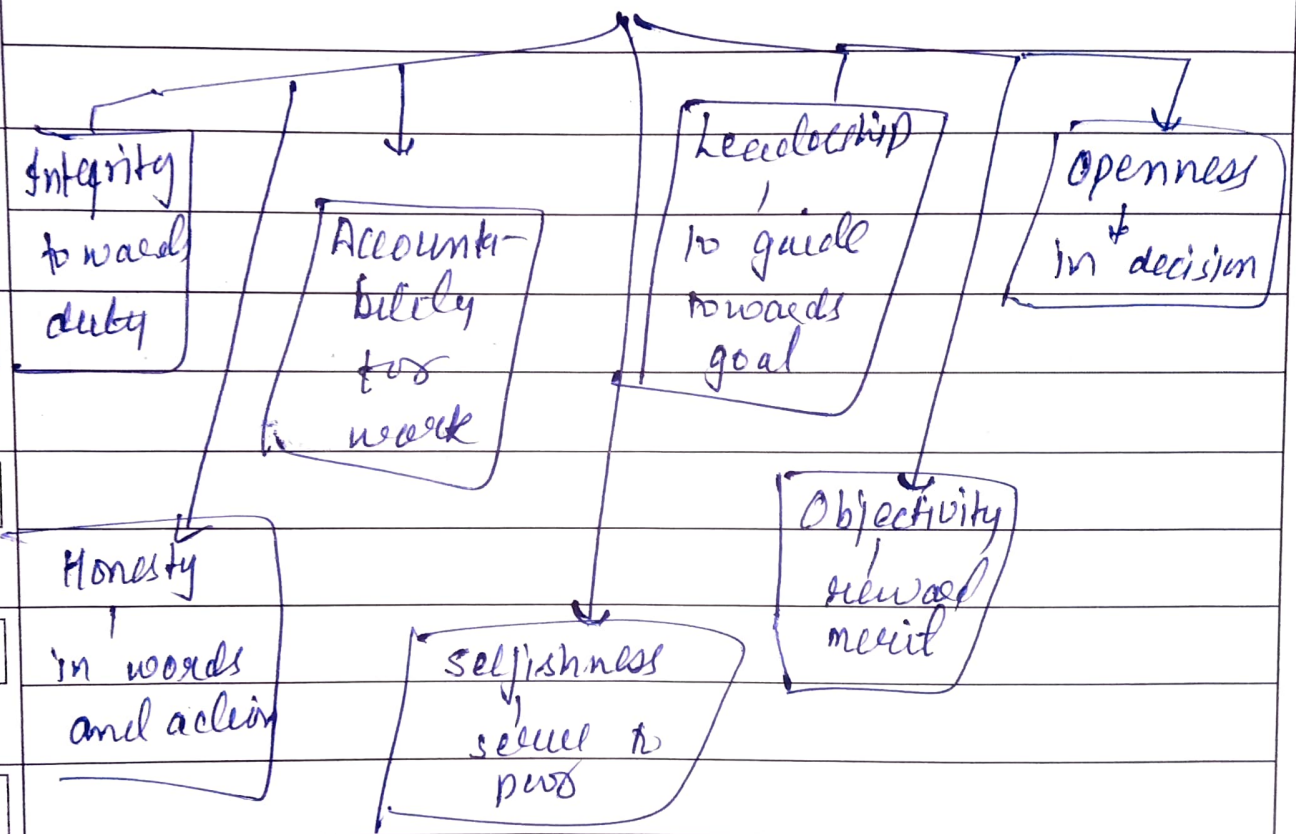 Integrity
towards
duty
Accounta-
bility
for
work
Leadership
to guide
towards
goal
Openness
in decision
Honesty
in words
and action
Selfishness
serve to
Objectivity
reward
merit